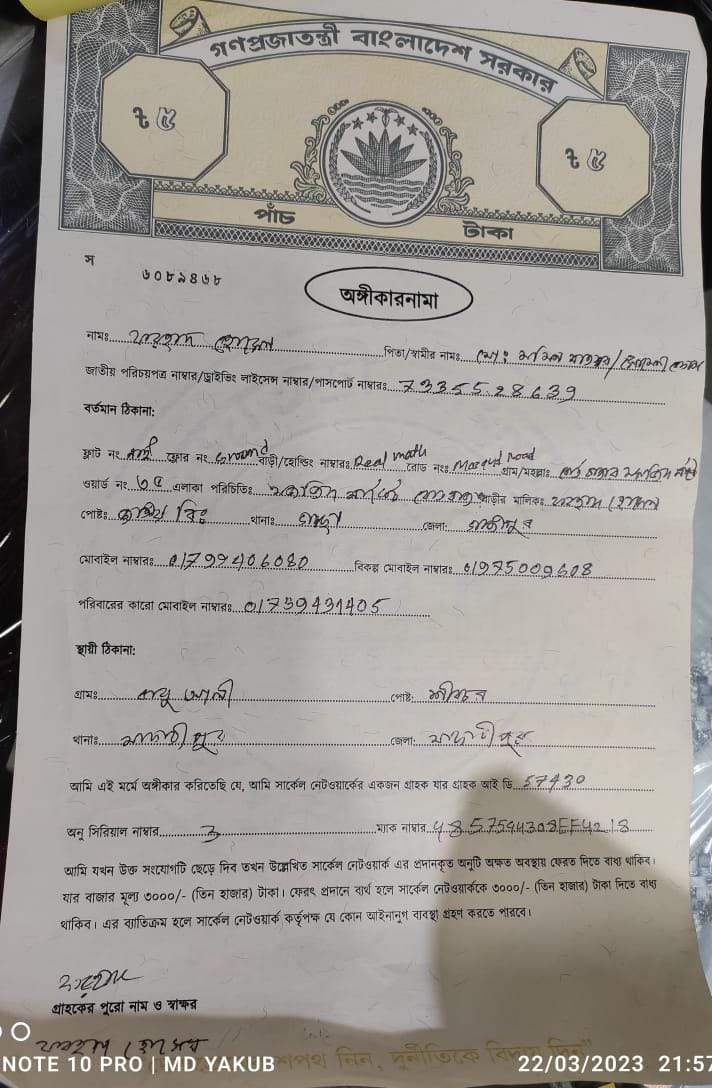 গণপ্রজাতন্ত্রী বাংলাদেশ সরকার
৳ ৫
৳ ৫
পাঁচ টাকা
স
৬০৮৯৪৬৮
অঙ্গীকারনামা
নামঃ পিতা/স্বামীর নামঃ
জাতীয় পরিচয়পত্র নাম্বার/ড্রাইভিং লাইসেন্স নাম্বার/পাসপোর্ট নাম্বারঃ 7335528639
বর্তমান ঠিকানা:
ফ্লাট নং ফ্লোর নং Ground বাড়ী/হোল্ডিং নাম্বারঃ Deal math রোড নংঃ Masjid road গ্রাম/মহল্লাঃ
ওয়ার্ড নং ৩৫ এলাকা পরিচিতিঃ বাড়ীর মালিকঃ
পোষ্টঃ থানাঃ গাছা জেলা: গাজীপুর
মোবাইল নাম্বারঃ 01799406080 বিকল্প মোবাইল নাম্বারঃ 01975009608
পরিবারের কারো মোবাইল নাম্বারঃ 01739431405
স্থায়ী ঠিকানা:
গ্রামঃ পোষ্ট:
থানাঃ মাদারীপুর জেলা: মাদারীপুর
আমি এই মর্মে অঙ্গীকার করিতেছি যে, আমি সার্কেল নেটওয়ার্কের একজন গ্রাহক যার গ্রাহক আই ডি 57430
অনু সিরিয়াল নাম্বার 3 ম্যাক নাম্বার 48575944308EF4218
আমি যখন উক্ত সংযোগটি ছেড়ে দিব তখন উল্লেখিত সার্কেল নেটওয়ার্ক এর প্রদানকৃত অনুটি অক্ষত অবস্থায় ফেরত দিতে বাধ্য থাকিব।
যার বাজার মূল্য ৩০০০/- (তিন হাজার) টাকা। ফেরৎ প্রদানে ব্যর্থ হলে সার্কেল নেটওয়ার্ককে ৩০০০/- (তিন হাজার) টাকা দিতে বাধ্য
থাকিব। এর ব্যতিক্রম হলে সার্কেল নেটওয়ার্ক কর্তৃপক্ষ যে কোন আইনানুগ ব্যবস্থা গ্রহণ করতে পারবে।
গ্রাহকের পুরো নাম ও স্বাক্ষর
শপথ নিন, দুর্নীতিকে বিদায় দিন"
NOTE 10 PRO | MD YAKUB 22/03/2023 21:57